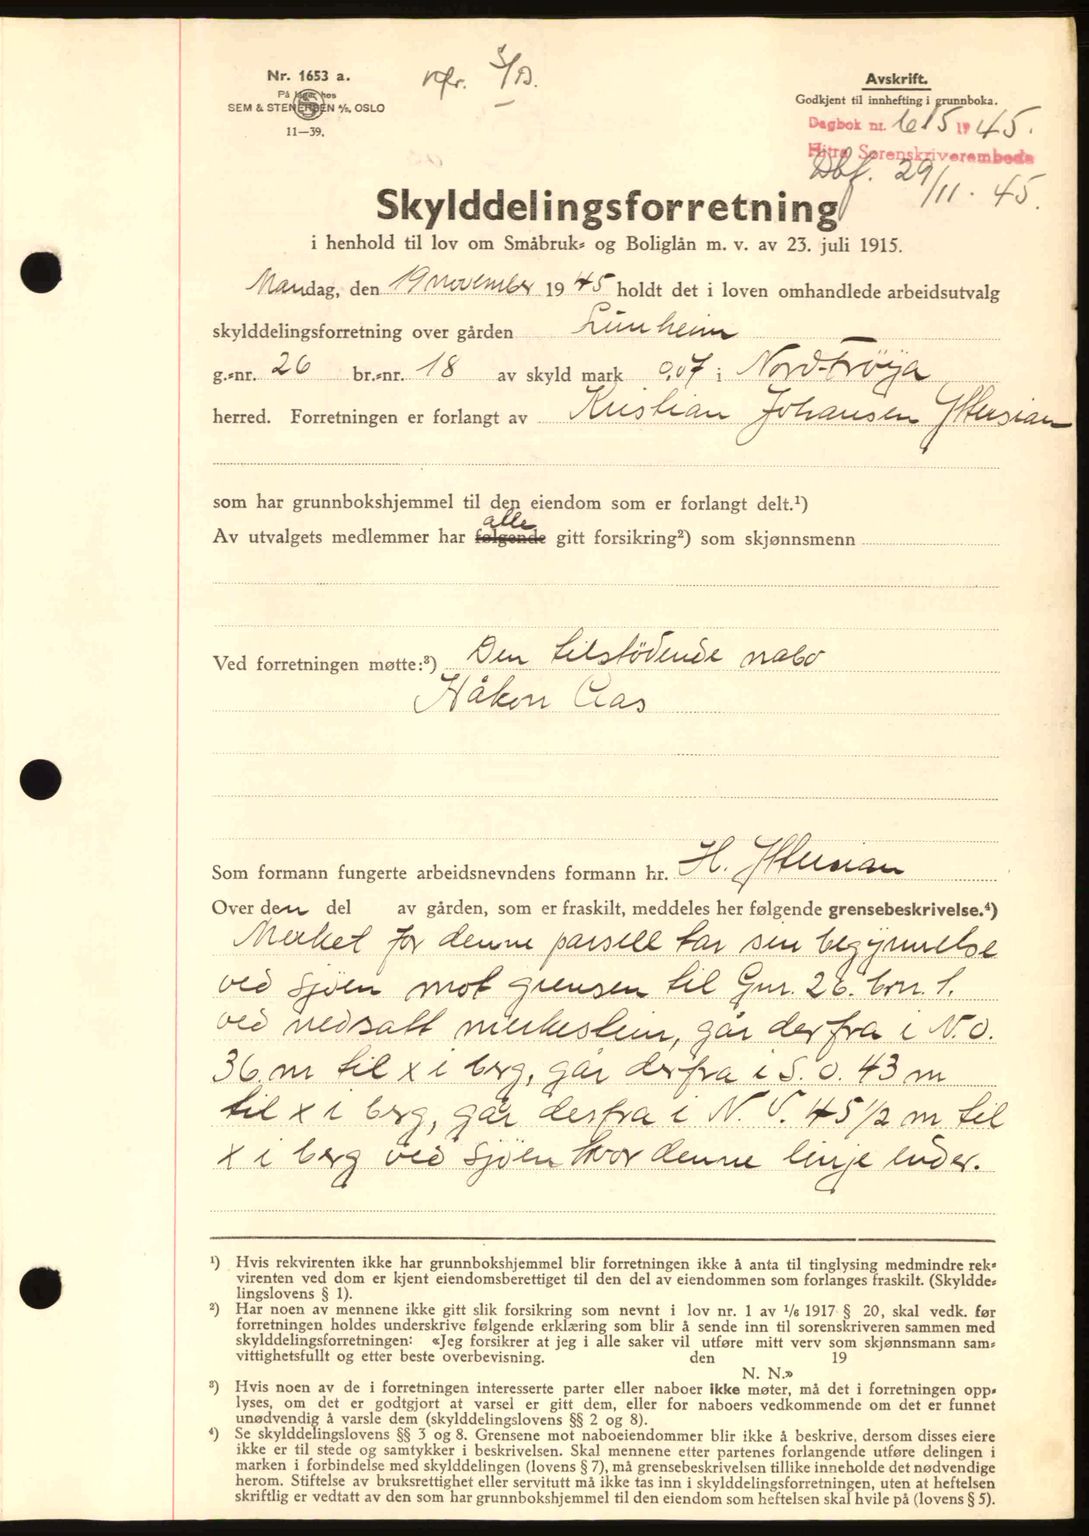 Nr. 1653 a.
På lager hos
SEM & STENERSEN A/S, OSLO
11—39.
vfr. S/D.
Avskrift.
Godkjent til innhefting i grunnboka.
Dagbok nr. 615 1945.
Hitra Sorenskriverembede
Dbf. 29/11. 45.
Skylddelingsforretning
i henhold til lov om Småbruk- og Boliglån m. v. av 23. juli 1915.
Mandag, den 19 november 1945 holdt det i loven omhandlede arbeidsutvalg
skylddelingsforretning over gården Lunheim
g.-nr. 26 br.-nr. 18 av skyld mark 0,07 i Nord-Fröya
herred. Forretningen er forlangt av Kristian Johansen Yttersian
som har grunnbokshjemmel til den eiendom som er forlangt delt.¹)
alle
Av utvalgets medlemmer har følgende gitt forsikring²) som skjønnsmenn
Ved forretningen møtte:³) Den tilstödende nabo
Håkon Aas
Som formann fungerte arbeidsnevndens formann hr. H. Yttersian
Over den del av gården, som er fraskilt, meddeles her følgende grensebeskrivelse.⁴)
Merket for denne parsell tar sin begynnelse
ved sjöen mot grensen til Gnr. 26. brn. 1.
ved nedsatt merkestein, går derfra i N.O.
36 m til x i berg, går derfra i S.O. 43 m
til x i berg, går derfra i N.V. 45 1/2 m til
x i berg ved sjöen hvor denne linje ender.
¹) Hvis rekvirenten ikke har grunnbokshjemmel blir forretningen ikke å anta til tinglysing medmindre rek-
virenten ved dom er kjent eiendomsberettiget til den del av eiendommen som forlanges fraskilt. (Skyldde-
lingslovens § 1).
²) Har noen av mennene ikke gitt slik forsikring som nevnt i lov nr. 1 av 1/6 1917 § 20, skal vedk. før
forretningen holdes underskrive følgende erklæring som blir å sende inn til sorenskriveren sammen med
skylddelingsforretningen: «Jeg forsikrer at jeg i alle saker vil utføre mitt verv som skjønnsmann sam-
vittighetsfullt og etter beste overbevisning. den 19
N. N.»
³) Hvis noen av de i forretningen interesserte parter eller naboer ikke møter, må det i forretningen opp-
lyses, om det er godtgjort at varsel er gitt dem, eller for naboers vedkommende om det er funnet
unødvendig å varsle dem (skylddelingslovens §§ 2 og 8).
⁴) Se skylddelingslovens §§ 3 og 8. Grensene mot naboeiendommer blir ikke å beskrive, dersom disses eiere
ikke er til stede og samtykker i beskrivelsen. Skal mennene etter partenes forlangende utføre delingen i
marken i forbindelse med skylddelingen (lovens § 7), må grensebeskrivelsen tillike inneholde det nødvendige
herom. Stiftelse av bruksrettighet eller servitutt må ikke tas inn i skylddelingsforretningen, uten at heftelsen
skriftlig er vedtatt av den som har grunnbokshjemmel til den eiendom som heftelsen skal hvile på (lovens § 5).